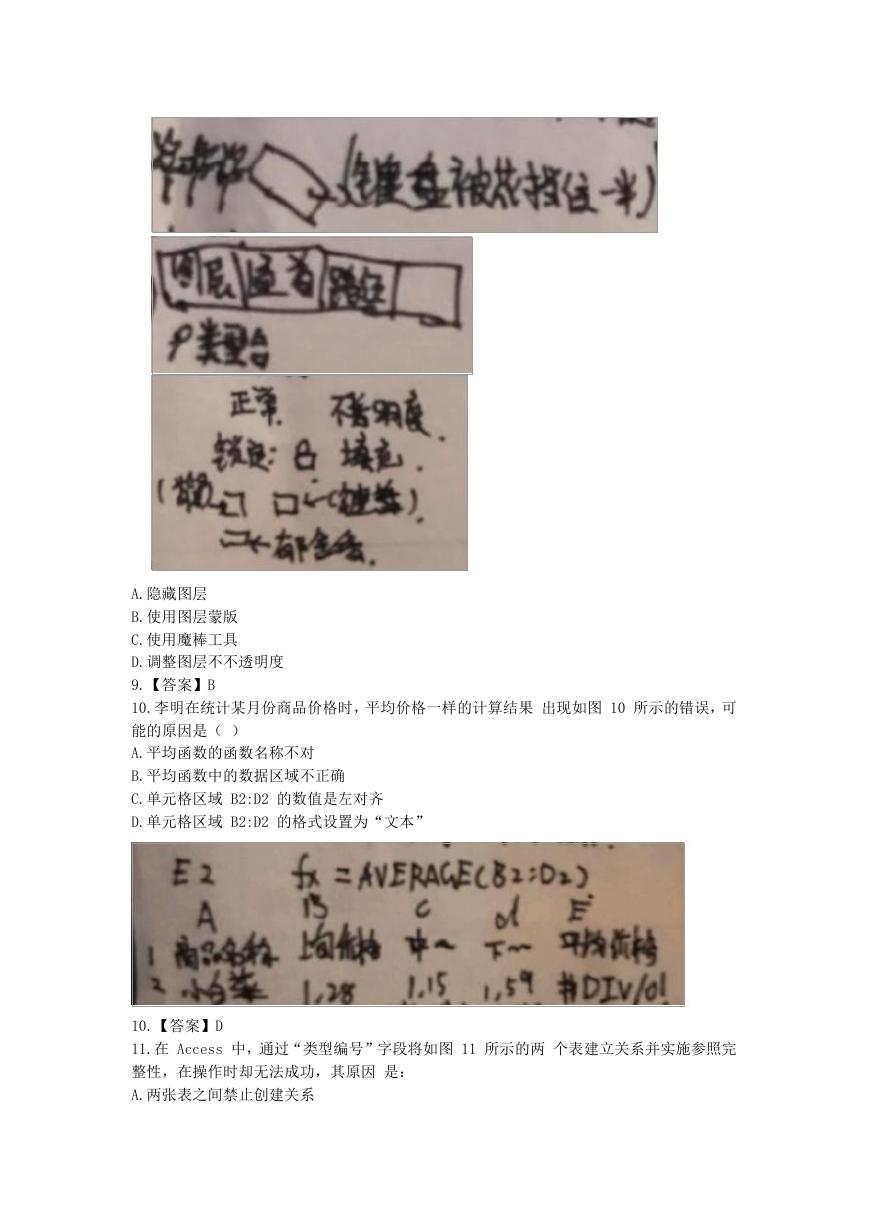 (键盘被花挡住一半)
图层 通道 路径
P类型
正常 不透明度
锁定: 填充
A.隐藏图层
B.使用图层蒙版
C.使用魔棒工具
D.调整图层不不透明度
9.【答案】B
10.李明在统计某月份商品价格时，平均价格一样的计算结果 出现如图 10 所示的错误，可
能的原因是（ ）
A.平均函数的函数名称不对
B.平均函数中的数据区域不正确
C.单元格区域 B2:D2 的数值是左对齐
D.单元格区域 B2:D2 的格式设置为“文本”
E2 fx =AVERAGE(B2:D2)
A B C d E
1 商品名称 上旬价格 中~ 下~ 平均价格
2 小白菜 1.28 1.15 1.59 #DIV/0!
10.【答案】D
11.在 Access 中，通过“类型编号”字段将如图 11 所示的两 个表建立关系并实施参照完
整性，在操作时却无法成功，其原因 是:
A.两张表之间禁止创建关系